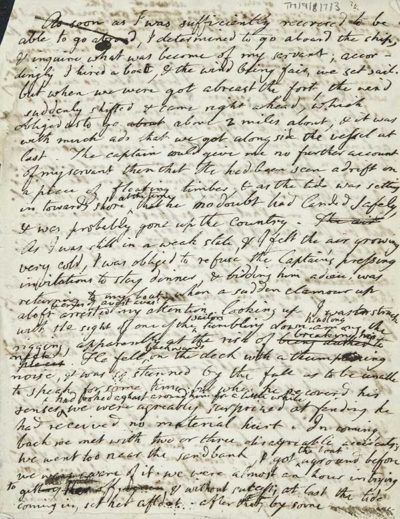 TH/19/8/17/3
As soon as I was sufficiently recovered to be
able to go abroad, I determined to go aboard the ship
& inquire what was become of my servant, accor
dingly I hired a boat & the wind being fair, we set sail.
but when we were got abreast the fort, the wind
suddenly shifted & came right ahead, which
obliged us to go about above 2 miles about, & it was
with much ado that we got along side the vessel at
last. The captain could give me no further account
of my servant than that he had been seen adrift on
a piece of floating timber, & as the tide was setting
in towards shore at the time that he no doubt had landed safely
& was probably gone up the country
As I was still in a weak state & I felt the air growing
very cold, I was obliged to refuse the Captains pressing
invitations to stay dinner & bidding him adieu, was
returning to my boat when a sudden clamour up
aloft arrested my attention, looking up I was
with the sight of one of the sailors tumbling down among the
rigging apparently at the risk of breaking
He fell on the deck with a thumping
noise, & was so stunned by the fall as to be unable
to speak for some time, but when he recovered his
senses & had looked aghast around him for a little while we were agreeably surprised at finding he
had received no material hurt. In coming
back we met with two or three disagreable accidents,
we went too near the sandbank & got the boat aground before
we were aware of it & we were almost an hour in trying
to get off & without success at last the tide
coming in, set her afloat. after that, by some